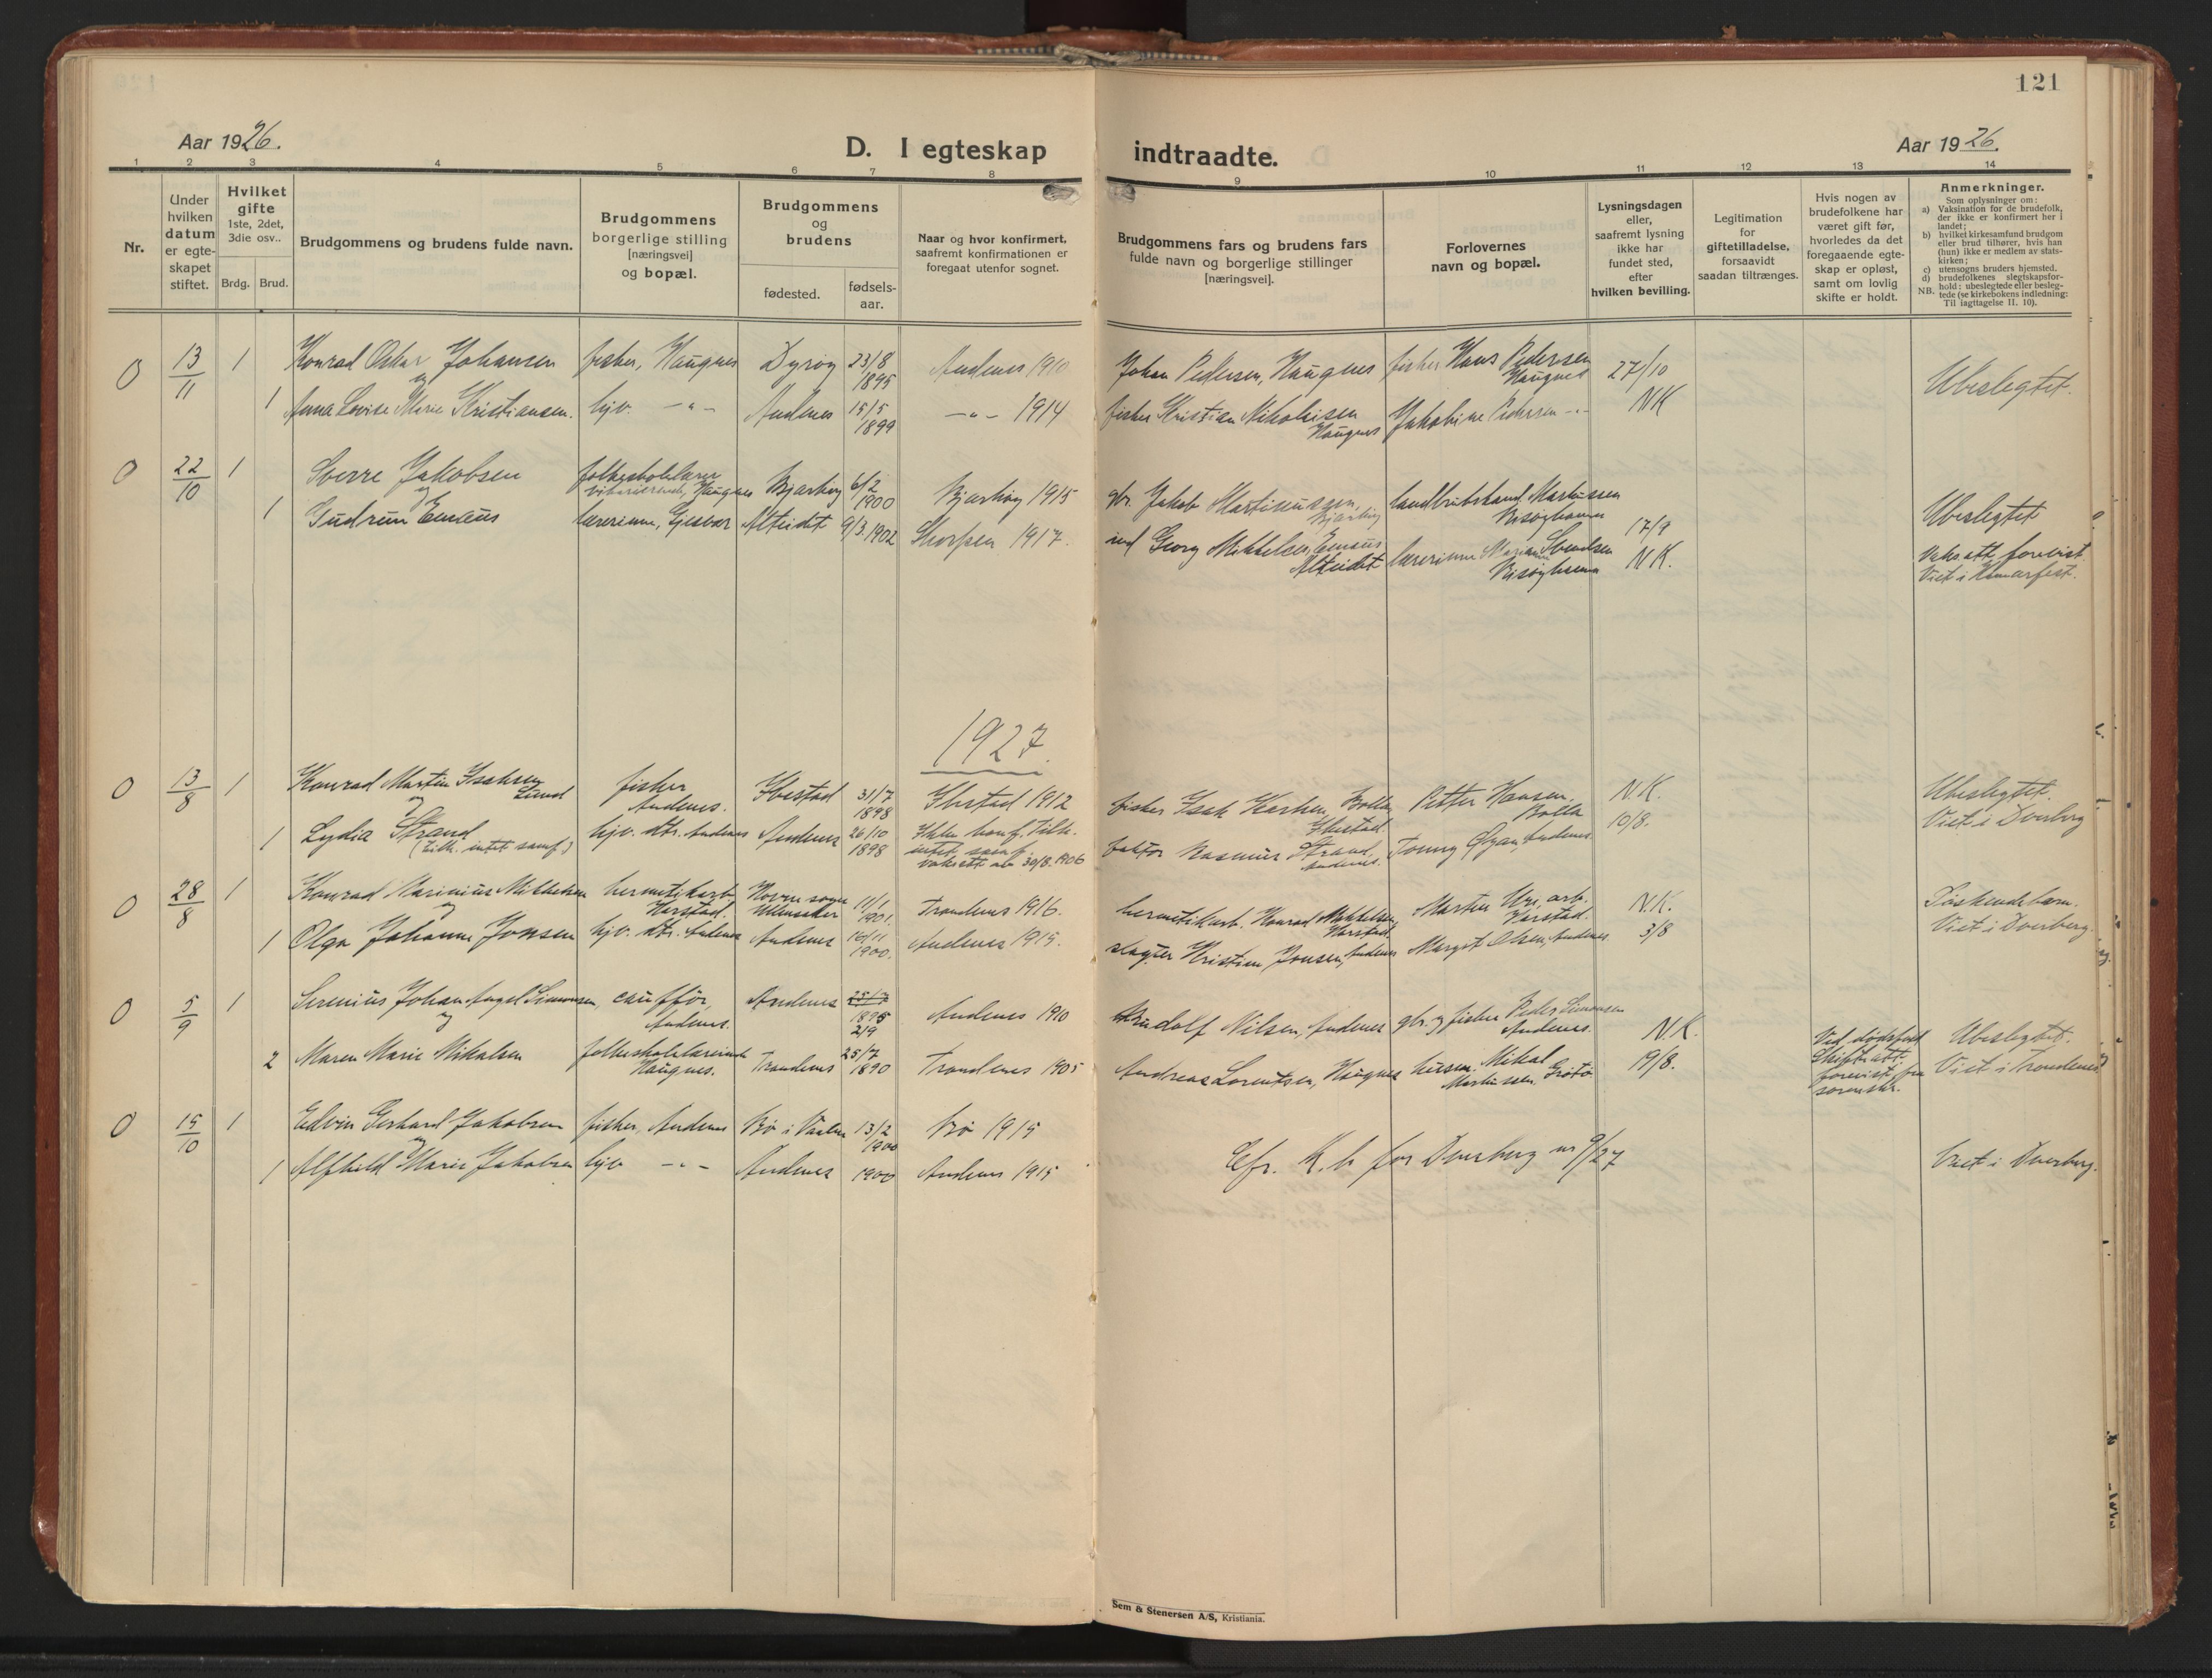 121
Aar 1926.
D. I egteskap indtraadte.
Aar 1926.
1 2 3 4 5 6 7 8 9 10 11 12 13 14
Nr.
Under hvilken datum er egteskapet stiftet.
Hvilket gifte 1ste, 2det, 3die osv..
Brdg. Brud.
Brudgommens og brudens fulde navn.
Brudgommens borgerlige stilling [næringsvei] og bopæl.
Brudgommens og brudens
fødested.
fødselsaar.
Naar og hvor konfirmert, saafremt konfirmationen er foregaat utenfor sognet.
Brudgommens fars og brudens fars fulde navn og borgerlige stillinger [næringsvei].
Forlovernes navn og bopæl.
Lysningsdagen eller, saafremt lysning ikke har fundet sted, efter hvilken bevilling.
Legitimation for giftetilladelse, forsaavidt saadan tiltrænges.
Hvis nogen av brudefolkene har været gift før, hvorledes da det foregaaende egteskap er opløst, samt om lovlig skifte er holdt.
Anmerkninger.
Som oplysninger om:
a) Vaksination for de brudefolk, der ikke er konfirmert her i landet;
b) hvilket kirkesamfund brudgom eller brud tilhører, hvis han (hun) ikke er medlem av statskirken;
c) utensogns bruders hjemsted.
d) brudefolkenes slegtskapsforhold: ubeslegtede eller beslegtede (se kirkebokens indledning:
NB. Til iagttagelse II. 10).
0 13/11 1 Konrad Oskar Johansen fisker, Haugnes Dyrøy 23/8 1895 Andenes 1910 Johan Pedersen, Haugnes fisker Hans Pedersen Haugnes 27/10 Ubeslegtet.
og
1 Anna Lovise Marie Kristiansen. hjv. -"- Andenes 15/5 1899 -"- 1914 fisker Kristian Nikolaisen Haugnes Jakobine Pedersen -"- NK
0 22/10 1 Sverre Jakobsen folkeskolelærer vikarierende, Haugnes Bjarkøy 6/2 1900 Bjarkøy 1915 gbr. Jakob Martinussen, Bjarkøy landbrukskand. Markussen Risøyhamn Ubeslegtet
og
1 Gudrun Emaus lærerinne, Gjesvær Alteidet 9/3.1902 Skorpen 1917. ind Georg Mikkelsen Emaus Alteidet lærerinne Svendsen Risøyhamn 17/9 NK. Vaksatt. forevist. Viet i Hamarfest.
1927.
0 13/8 1 Konrad Martin Isaksen Lund fisker Andenes. Ibestad 31/7 1898 Ibestad 1912 fisker Isak Bolla Ibestad Petter Hansen, Bolla N.K. Ubeslegtet.
og
1 Lydia Strand (tilh. intet samf.) hjv. dtr. Andenes Andenes 26/10 1898 Ikke konf. Tilh. intet samf. Vaksatt av 30/8.1906 Rasmus Strand, Andenes. Andenes 10/8. Viet i Dverberg
0 28/8 1 Konrad Marinius Mikkelsen hermetikarb. Harstad. 11/1 1901. Trondenes 1916. hermetikarb. Konrad Mikkelsen, Harstad. Martin Urs, arb. Harstad. N.K. Søskendebarn.
og
1 Olga Johanne Jonsen hjv. dtr. Andenes Andenes 16/11 1900. Andenes 1915. slagter Kristian Jonsen, Andenes Margit Olsen, Andenes 3/8 Viet i Dverberg.
0 5/9 1 Serenius Johan Angel Simonsen, cauffør, Andenes. Andenes 25/7 1895 2/9 Andenes 1910 Rudolf Nilsen, Andenes gbr. og fisker Peder Simonsen Andenes. N.K. Ubeslegtet.
og
2 Maren Marie Mikalsen folkeskolelærerinde Haugnes. Trondenes 25/7 1890 Trondenes 1905 Andreas Lorentsen, Haugnes Mikal Markussen Grøtø 19/8. Ved dødsfald Skifteatt. forevist fra sorenskr. Viet i Trondenes
0 15/10 1 Edvin Gerhard Jakobsen fisker, Andenes Bø i Vesterålen 13/2 1900 Bø 1915
og
1 Alfhild Marie Jakobsen hjv -"- Andenes 1900 Andenes 1915 Cfr. K.b. for Dverberg nr 9/27 Viet i Dverberg.
Sem & Stenersen A/S, Kristiania.